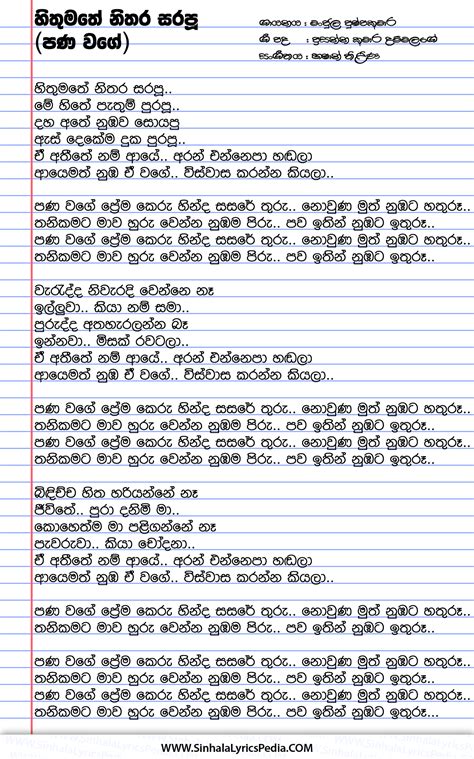 හිතුමතේ නිතර සරපූ
(පණ වගේ)
ගායනය : මංජුල පුෂ්පකුමාර
ගී පද :
සංගීතය :
හිතුමතේ නිතර සරපූ..
මේ හිතේ පැතුම් පුරපූ..
දහ අතේ නුඹව සොයපු
ඇස් දෙකේම දුක පුරපූ..
ඒ අතීතේ නම් ආයේ.. අරන් එන්නෙපා හඬලා
ආයෙමත් නුඹ ඒ වගේ.. විස්වාස කරන්න කියලා..
පණ වගේ ප්‍රේම කෙරු හින්ද සසරේ තුරු.. නොවුණ මුත් නුඹට හතුරූ..
තනිකමට මාව හුරු වෙන්න නුඹම පිරු.. පව ඉතින් නුඹට ඉතුරූ..
පණ වගේ ප්‍රේම කෙරු හින්ද සසරේ තුරු.. නොවුණ මුත් නුඹට හතුරූ..
තනිකමට මාව හුරු වෙන්න නුඹම පිරු.. පව ඉතින් නුඹට ඉතුරූ..
වැරැද්ද නිවැරදි වෙන්නෙ නෑ
ඉල්ලුවා.. කියා නම් සමා..
පුරුද්ද අතහැරලන්න බෑ
ඉන්නවා.. මිසක් රවටලා..
ඒ අතීතේ නම් ආයේ.. අරන් එන්නෙපා හඬලා
ආයෙමත් නුඹ ඒ වගේ.. විස්වාස කරන්න කියලා..
පණ වගේ ප්‍රේම කෙරු හින්ද සසරේ තුරු.. නොවුණ මුත් නුඹට හතුරූ..
තනිකමට මාව හුරු වෙන්න නුඹම පිරු.. පව ඉතින් නුඹට ඉතුරූ..
පණ වගේ ප්‍රේම කෙරු හින්ද සසරේ තුරු.. නොවුණ මුත් නුඹට හතුරූ..
තනිකමට මාව හුරු වෙන්න නුඹම පිරු.. පව ඉතින් නුඹට ඉතුරූ..
බිඳිච්ච හිත හරියන්නේ නෑ
ජීවිතේ.. පුරා දනිමි මා..
කොහෙත්ම මා පළිගන්නේ නෑ
පැවරුවා.. කියා චෝදනා..
ඒ අතීතේ නම් ආයේ.. අරන් එන්නෙපා හඬලා
ආයෙමත් නුඹ ඒ වගේ.. විස්වාස කරන්න කියලා..
පණ වගේ ප්‍රේම කෙරු හින්ද සසරේ තුරු.. නොවුණ මුත් නුඹට හතුරූ..
තනිකමට මාව හුරු වෙන්න නුඹම පිරු.. පව ඉතින් නුඹට ඉතුරූ..
පණ වගේ ප්‍රේම කෙරු හින්ද සසරේ තුරු.. නොවුණ මුත් නුඹට හතුරූ..
තනිකමට මාව හුරු වෙන්න නුඹම පිරු.. පව ඉතින් නුඹට ඉතුරූ..
පණ වගේ ප්‍රේම කෙරු හින්ද සසරේ තුරු.. නොවුණ මුත් නුඹට හතුරූ..
තනිකමට මාව හුරු වෙන්න නුඹම පිරු.. පව ඉතින් නුඹට ඉතුරූ...
www.SinhalaLyricsPedia.COM